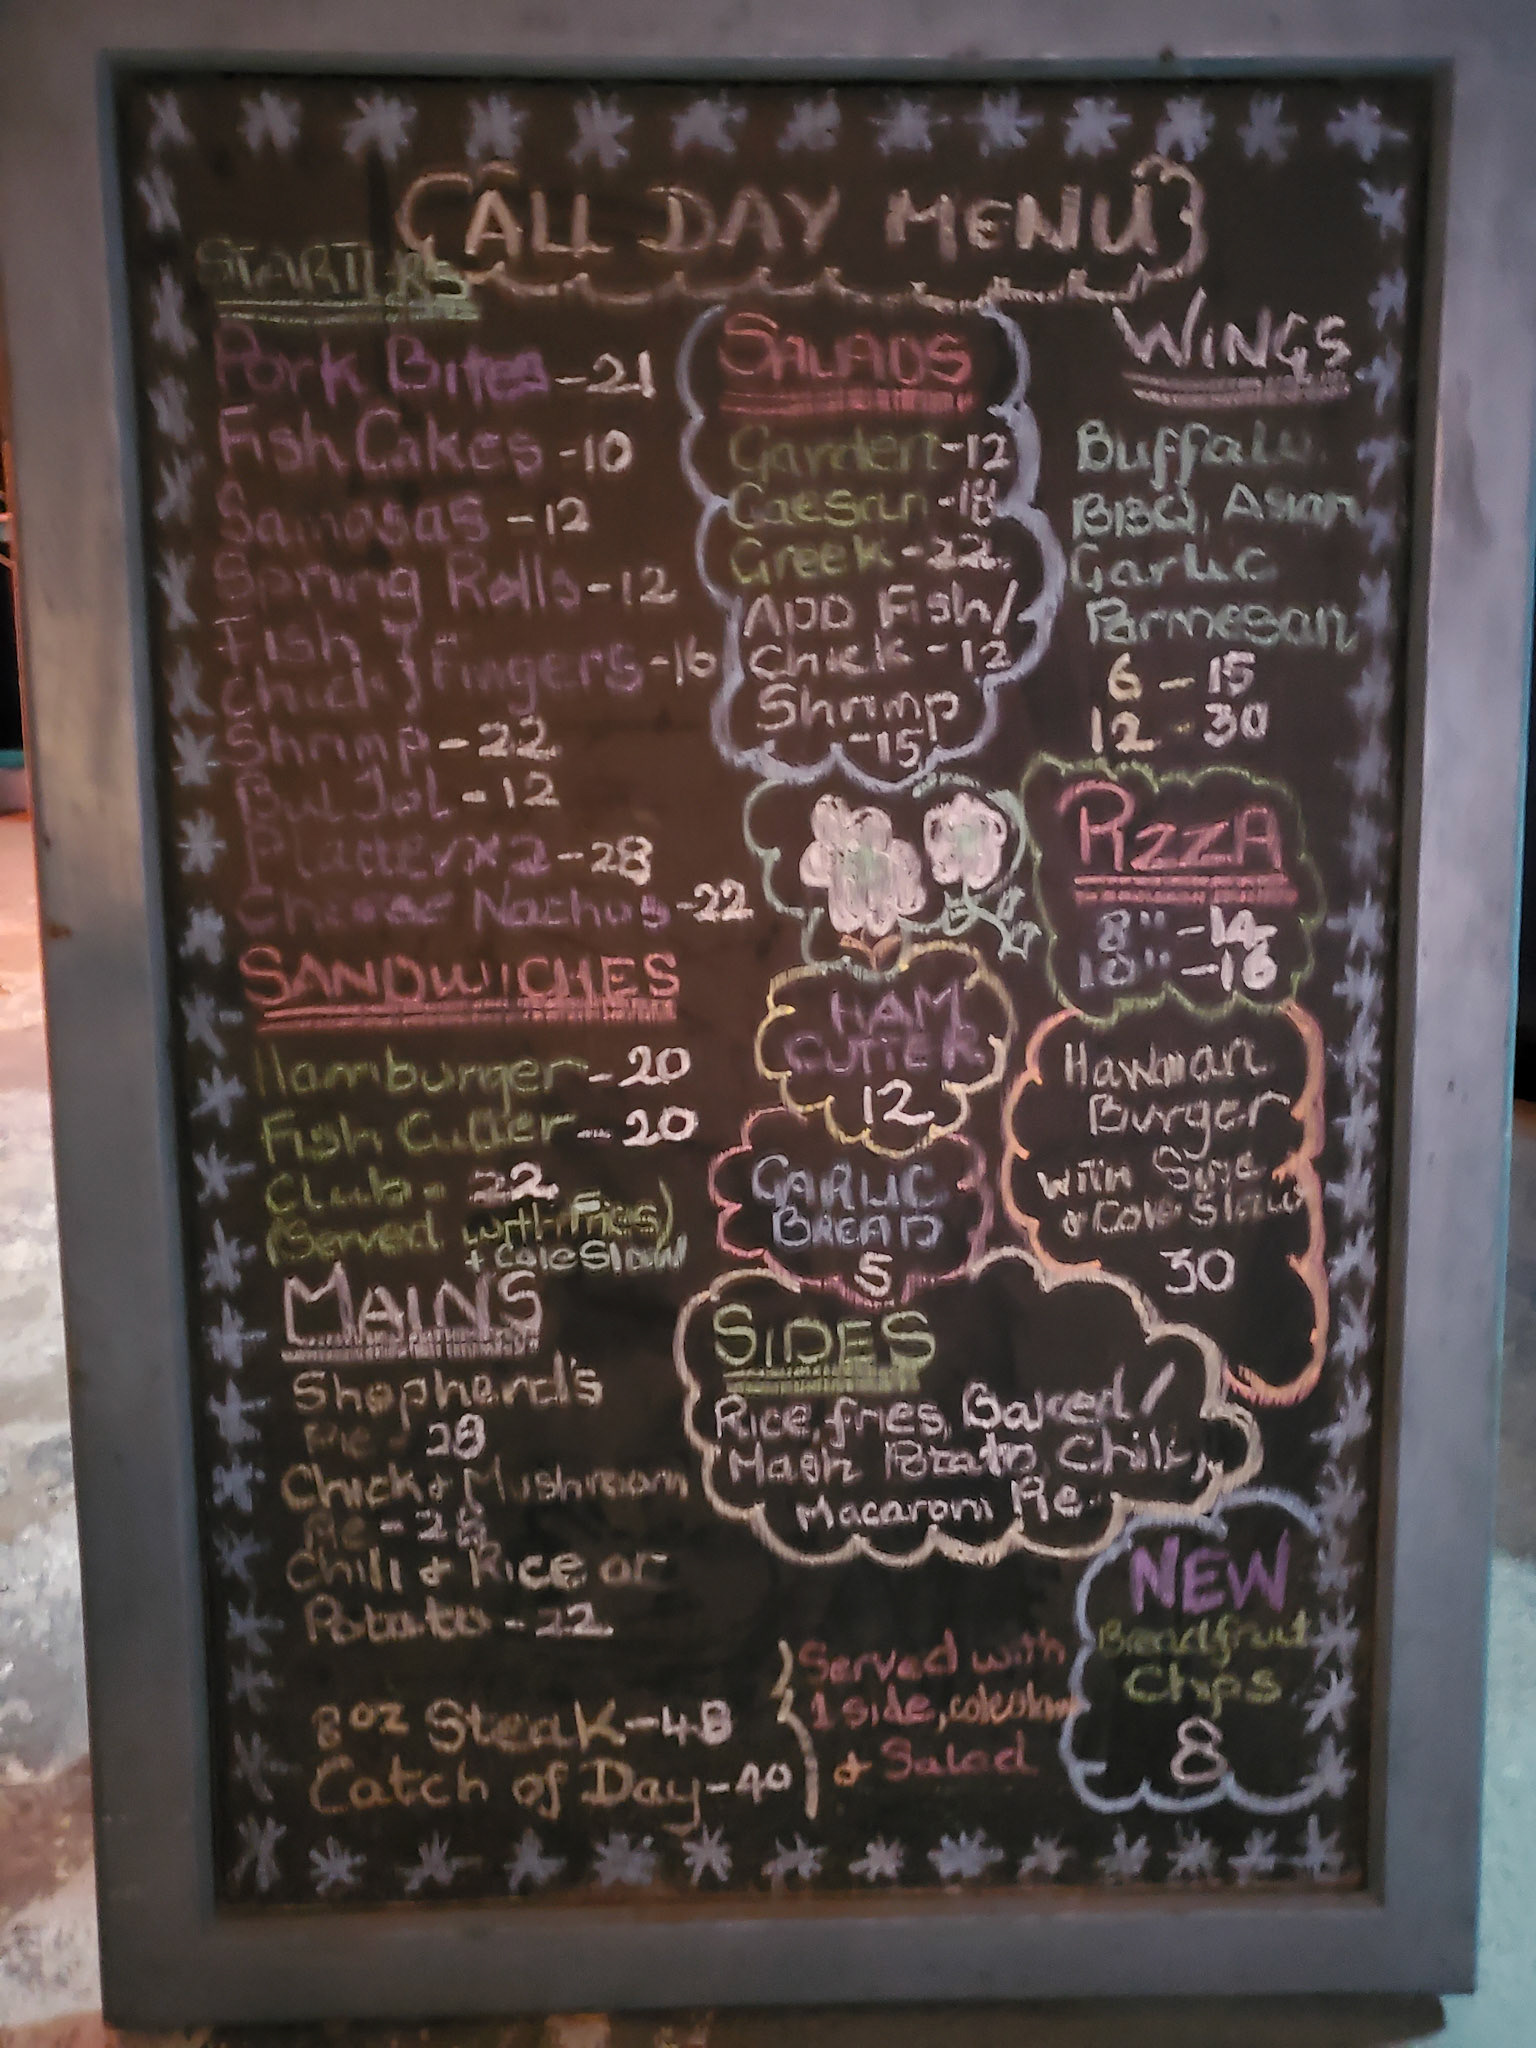 ALL DAY MENU
STARTERS
Pork Bites - 21
Fish Cakes - 10
Samosas - 12
Spring Rolls - 12
Fish
Chick } Fingers - 16
Shrimp - 22
Bul Jol - 12
Platter x 2 - 28
Cheese Nachos - 22
SANDWICHES
Hamburger - 20
Fish Cutter - 20
Club - 22
(Served with Fries)
+ Cole Slaw
MAINS
Shepherd's
Pie - 28
Chick + Mushroom
Pie - 28
Chili + Rice or
Potato - 22
8oz Steak - 48
Catch of Day - 40
Served with
1 side, coleslaw
+ Salad
SALADS
Garden - 12
Caesar - 18
Greek - 22
ADD Fish/
Chick - 12
Shrimp
- 15
HAM
CUTTER
12
GARLIC
BREAD
5
SIDES
Rice, fries, Baked/
Mash Potato, Chili,
Macaroni Pie
WINGS
Buffalo
BBQ, Asian
Garlic
Parmesan
6 - 15
12 - 30
PIZZA
8" - 14
10" - 16
Hawaiian
Burger
with Side
+ Cole Slaw
30
NEW
Breadfruit
Chips
8